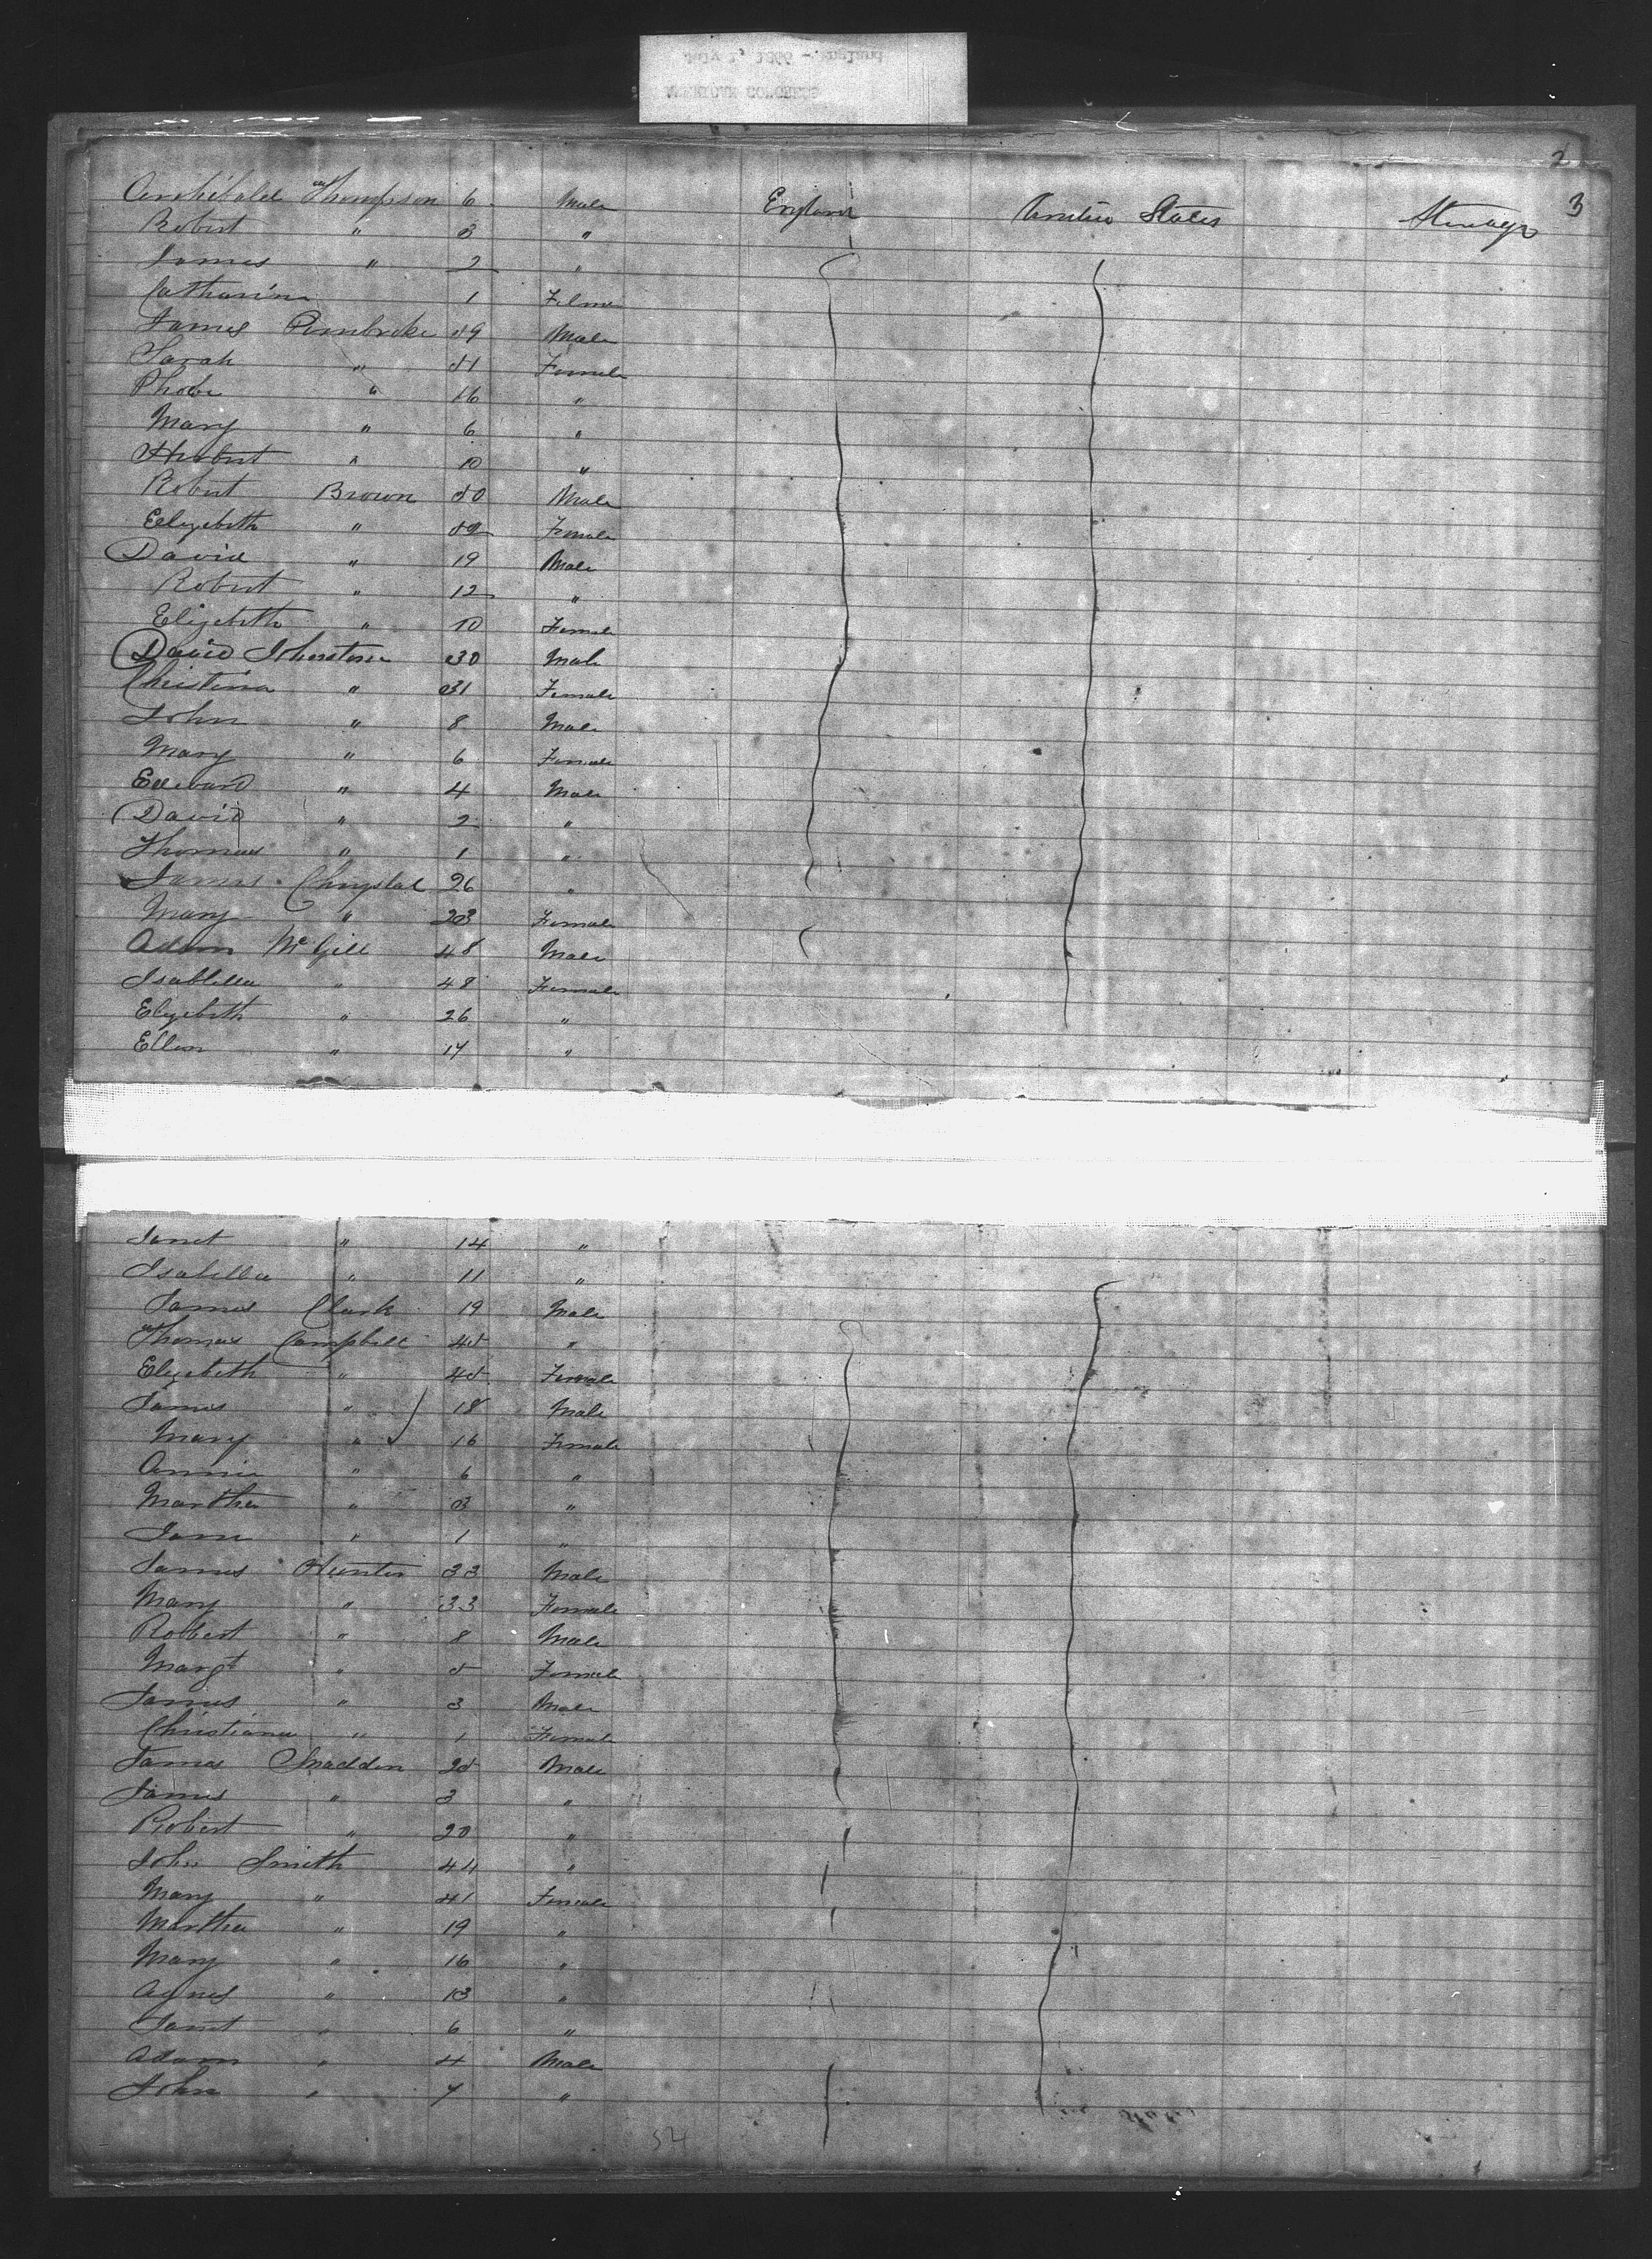 2
3
Archibald Thompson 6 Male England United States Steerage
Robert " 3 "
James " 2 "
Catharine 1 Felmae
James Pembroke 59 Male
Sarah " 51 Female
Phobe " 16 "
Mary " 6 "
Herbert " 10 "
Robert Brown 50 Male
Elizebeth " 52 Female
David " 19 Male
Robert " 12 "
Elizebeth " 10 Female
David Johnstone 30 Male
Christina " 31 Female
John " 8 Male
Mary " 6 Female
Edward " 4 Male
David " 2 "
Thomas " 1 "
James Chrystal 26 "
Mary " 23 Female
Adam McGill 48 Male
Isabella " 48 Female
Elizebeth " 26 "
Ellen " 17 "
Janet " 14 "
Isabella " 11 "
James Clark 19 Male
Thomas Campbell 45 "
Elizebeth " 45 Female
James " 18 Male
Mary " 16 Female
Annie " 6 "
Martha " 3 "
Jane " 1 "
James Hunter 33 Male
Mary " 33 Female
Robert " 8 Male
Margt " 5 Female
James " 3 Male
Christiana " 1 Female
James Snadden 25 Male
James " 3 "
Robert " 20 "
John Smith 44 "
Mary " 41 Female
Martha " 19 "
Mary " 16 "
Agnes " 13 "
Janet " 6 "
Adam " 4 Male
John " 7 "
54